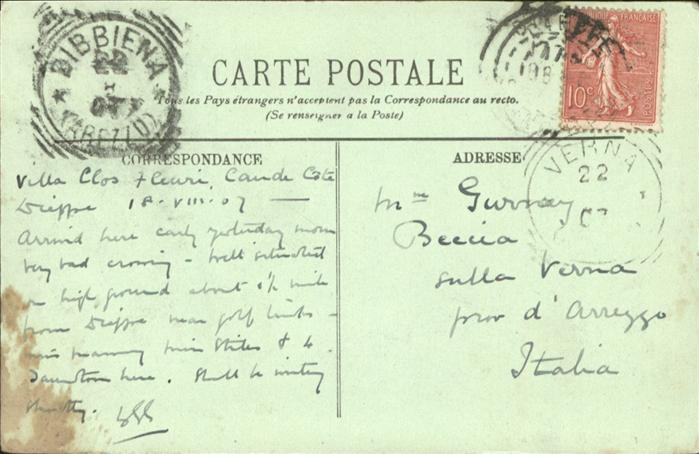 BIBBIENA
22
(AREZZO)
CARTE POSTALE
Tous les Pays étrangers n'acceptent pas la Correspondance au recto.
(Se renseigner à la Poste)
RÉPUBLIQUE FRANÇAISE
10c
POSTES
CORRESPONDANCE
ADRESSE
VERNA
22
Villa Clos Fleuri, Caude Cote
Dieppe 18-VIII-07
Arrived here early yesterday morn
very bad crossing - well situated
on high ground about 1½ mile
from Dieppe near golf links -
Miss Stiles & 
here. Shall be writing
shortly.
Mme Gurney
Beccia
sulla Verna
prov d'Arezzo
Italia